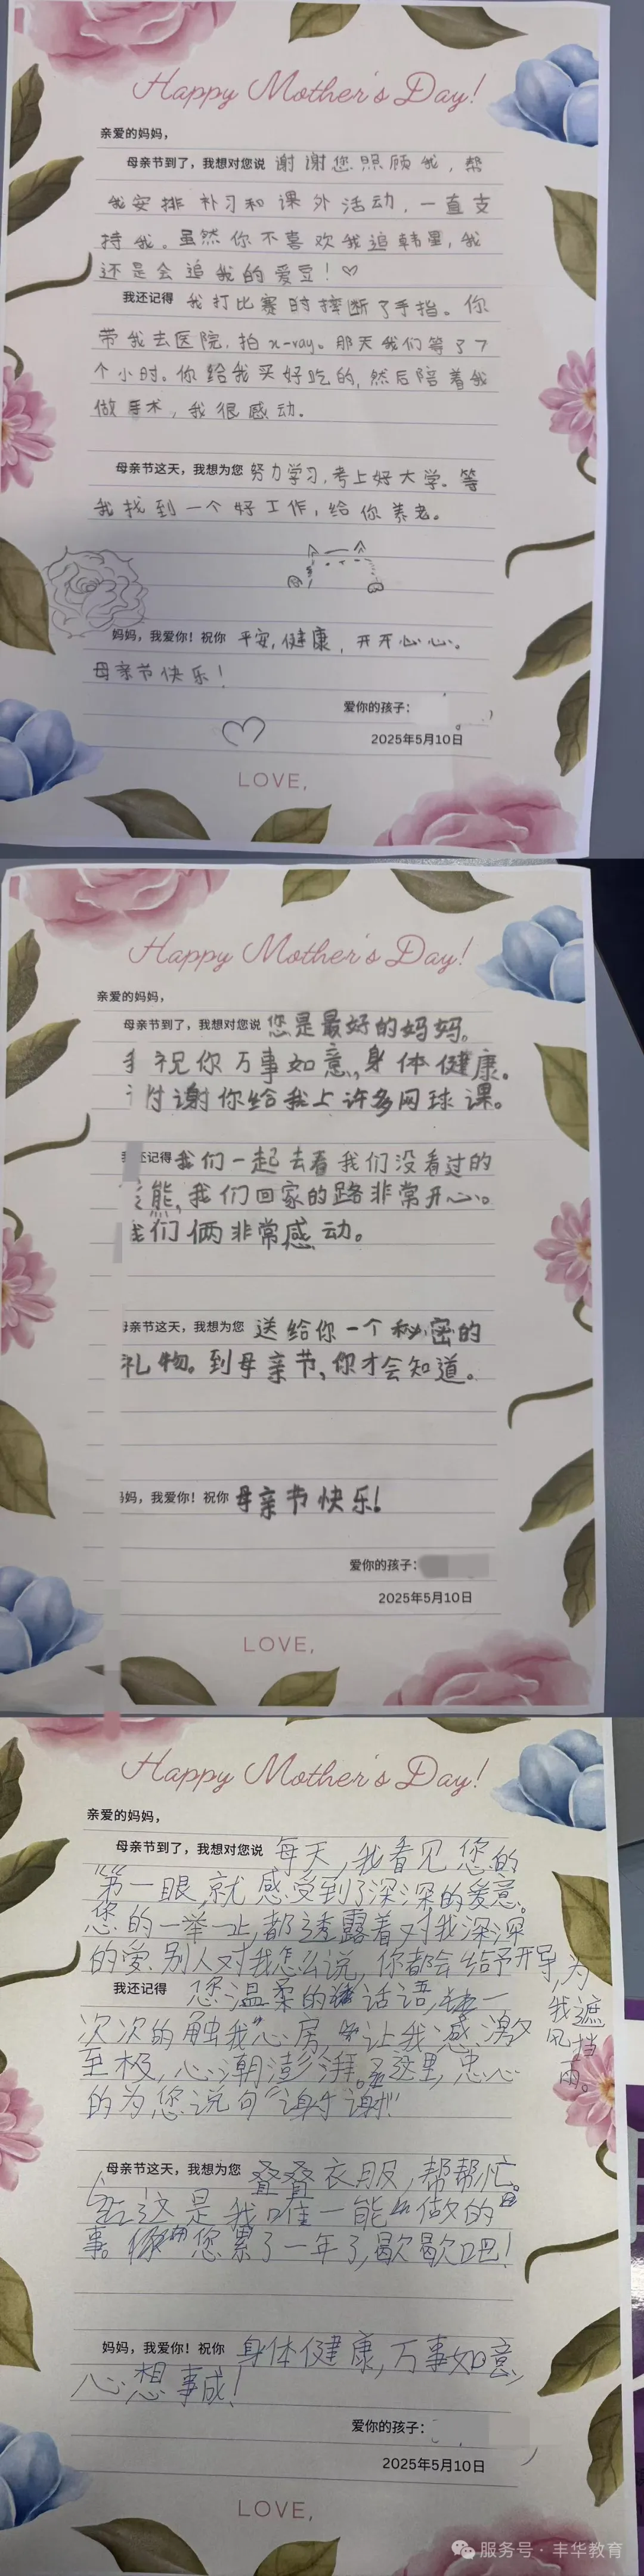 Happy Mother's Day!
亲爱的妈妈，
母亲节到了，我想对您说 谢谢您照顾我，帮
我安排补习和课外活动，一直支
持我。虽然你不喜欢我追韩星，我
还是会追我的爱豆！♡
我还记得 我打比赛时摔断了手指。你
带我去医院，拍x-ray。那天我们等了7
个小时。你给我买好吃的，然后陪着我
做手术，我很感动。
母亲节这天，我想为您 努力学习，考上好大学。等
我找到一个好工作，给你养老。
妈妈，我爱你！祝你 平安，健康，开开心心。
母亲节快乐！
爱你的孩子：
2025年5月10日
LOVE,
Happy Mother's Day!
亲爱的妈妈，
母亲节到了，我想对您说 您是最好的妈妈。
祝你万事如意，身体健康。
谢你给我上许多网球课。
我还记得 我们一起去看我们没看过的
熊，我们回家的路非常开心。
我们俩非常感动。
母亲节这天，我想为您 送给你一个秘密的
礼物。到母亲节，你才会知道。
妈妈，我爱你！祝你 母亲节快乐！
爱你的孩子：
2025年5月10日
LOVE,
Happy Mother's Day!
亲爱的妈妈，
母亲节到了，我想对您说 每天，我看见您的
第一眼，就感受到了深深的爱意。
您的一举一止，都透露着对我深深
的爱。别人对我怎么说，你都会给予开导，为
我遮
风挡
雨。
我还记得 您温柔的话语，一
次次的触我心房，让我感激
至极，心潮澎湃。这里，忠心
的为您说句“谢谢”
母亲节这天，我想为您 叠叠衣服，帮帮忙。
这是我唯一能做的
事。您累了一年了，歇歇吧！
妈妈，我爱你！祝你 身体健康，万事如意，
心想事成！
爱你的孩子：
2025年5月10日
LOVE,
服务号·丰华教育